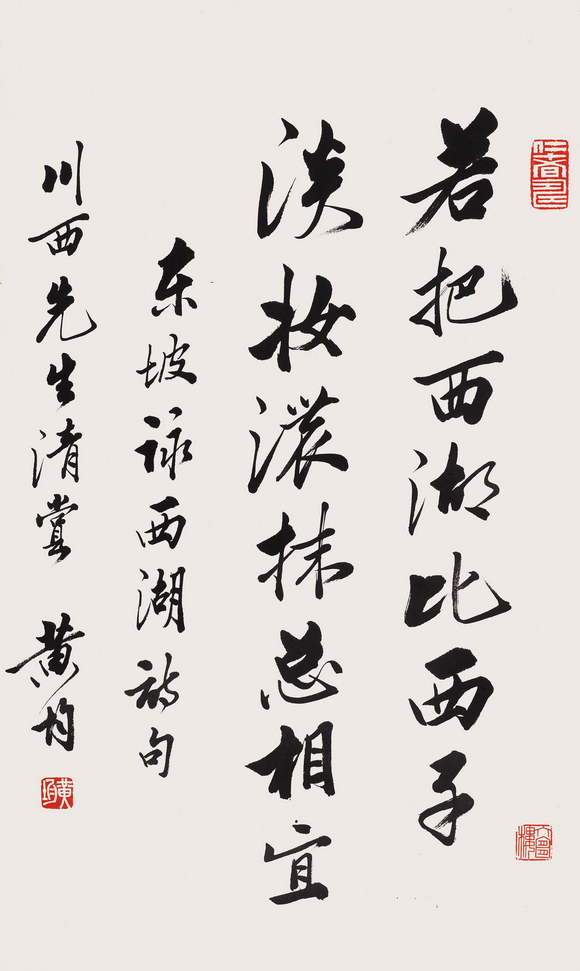 若把西湖比西子
淡妆浓抹总相宜
东坡咏西湖诗句
川西先生清赏 黄均
黄均